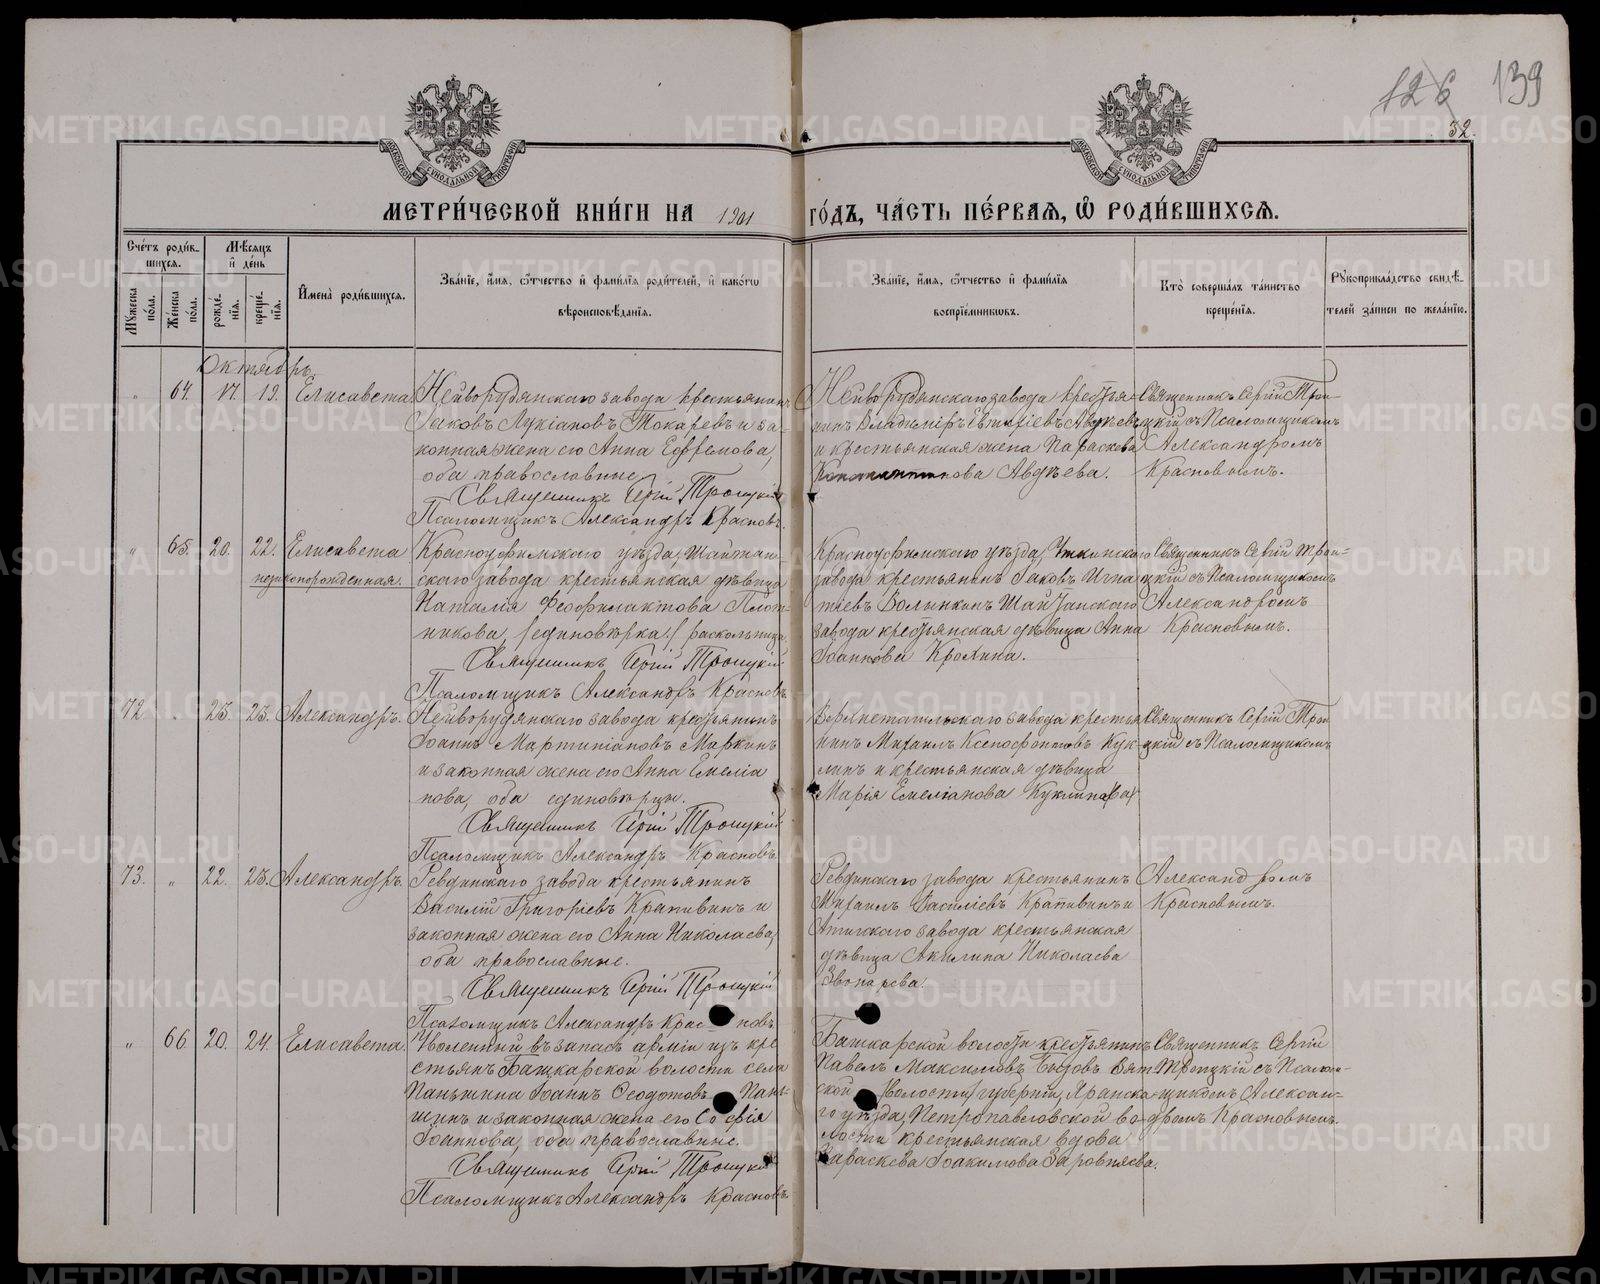 126 139
32.
МЕТРИ́ЧЕСКОЙ КНИ́ГИ НА 1901 ГО́ДЪ, ЧА́СТЬ ПЕ́РВАЯ, Ѡ РОДИ́ВШИХСЯ.
Сче́тъ роди́вшихся.
Му́жеска по́ла.
Же́нска по́ла.
Мѣ́сяцъ и де́нь
рожде́нія.
креще́нія.
Имена̀ роди́вшихся.
Зва́ніе, и́мя, ѻ́тчество и фами́лія роди́телей, и како́гѡ вѣроисповѣ́данія.
Зва́ніе, и́мя, ѻ́тчество и фами́лія воспріе́мниковъ.
Кто̀ соверша́лъ та́инство креще́нія.
Рукоприкла́дство свидѣ́телей за́писи по жела́нію.
Октябрь
" 64. 17. 19. Елисавета.
Нейворудянскаго завода крестьянинъ
Іаковъ Лукіановъ Токаревъ и за-
конная жена его Анна Ефремова,
оба православные.
Священникъ Сергій Троицкій
Псаломщикъ Александръ Красновъ.
Нейворудянскаго завода крестья-
нинъ Владиміръ Евтихіевъ Авдѣевъ
и крестьянская жена Параскева
Константинова Авдѣева.
Священникъ Сергій Трои-
цкій съ Псаломщикомъ
Александромъ
Красновымъ.
" 65. 20. 22. Елисавета
незаконорожденная.
Красноуфимскаго уѣзда, Шайтан-
скаго завода крестьянская дѣвица
Наталія Феофилактова Плот-
никова, (единовѣрка.) раскольница.
Священникъ Сергій Троицкій
Псаломщикъ Александръ Красновъ.
Красноуфимскаго уѣзда, Уткинскаго
завода крестьянинъ Іаковъ Игна
тіевъ Волынкинъ Шайтанскаго
завода крестьянская дѣвица Анна
Іоаннова
Священникъ Сергій Трои-
цкій съ Псаломщикомъ
Александромъ
Красновымъ.
72. " 23. 23. Александръ.
Нейворудянскаго завода крестьянинъ
Іоаннъ Мартиніановъ Маркинъ
и законная жена его Анна Емеліа
нова, оба единовѣрцы.
Священникъ Сергій Троицкій
Псаломщикъ Александръ Красновъ.
Верхнетагильскаго завода крестья
нинъ Михаилъ Ксенофонтовъ Кук-
линъ и крестьянская дѣвица
Марія Емеліанова Куклина
Священникъ Сергій Трои
цкій съ Псаломщикомъ
73. " 22. 23. Александръ.
Ревдинскаго завода крестьянинъ
Василій Григоріевъ Крапивинъ и
законная жена его Анна Николаева,
оба православные.
Священникъ Сергій Троицкій
Псаломщикъ Александръ Красновъ.
Ревдинскаго завода крестьянинъ
Михаилъ Василіевъ Крапивинъ и
Атигскаго завода крестьянская
дѣвица Акилина Николаева
Звонарева.
Александромъ
Красновымъ.
" 66 20. 24. Елисавета.
Уволенный въ запасъ арміи изъ кре
стьянъ Башкарской волости села
Паньшина Іоаннъ Ѳеодотовъ Пань-
шинъ и законная жена его Софія
Іоаннова, оба православные.
Священникъ Сергій Троицкій
Псаломщикъ Александръ Красновъ
Башкарской волости крестьянинъ
Павелъ Максимовъ Вят
ской губерніи, Яранска-
го уѣзда, Петропавловской во-
лости крестьянская вдова
Параскева Іоакимова
Священникъ Сергій
Троицкій съ Псалом-
щикомъ Алексан-
дромъ Красновымъ.
METRIKI.GASO-URAL.RU